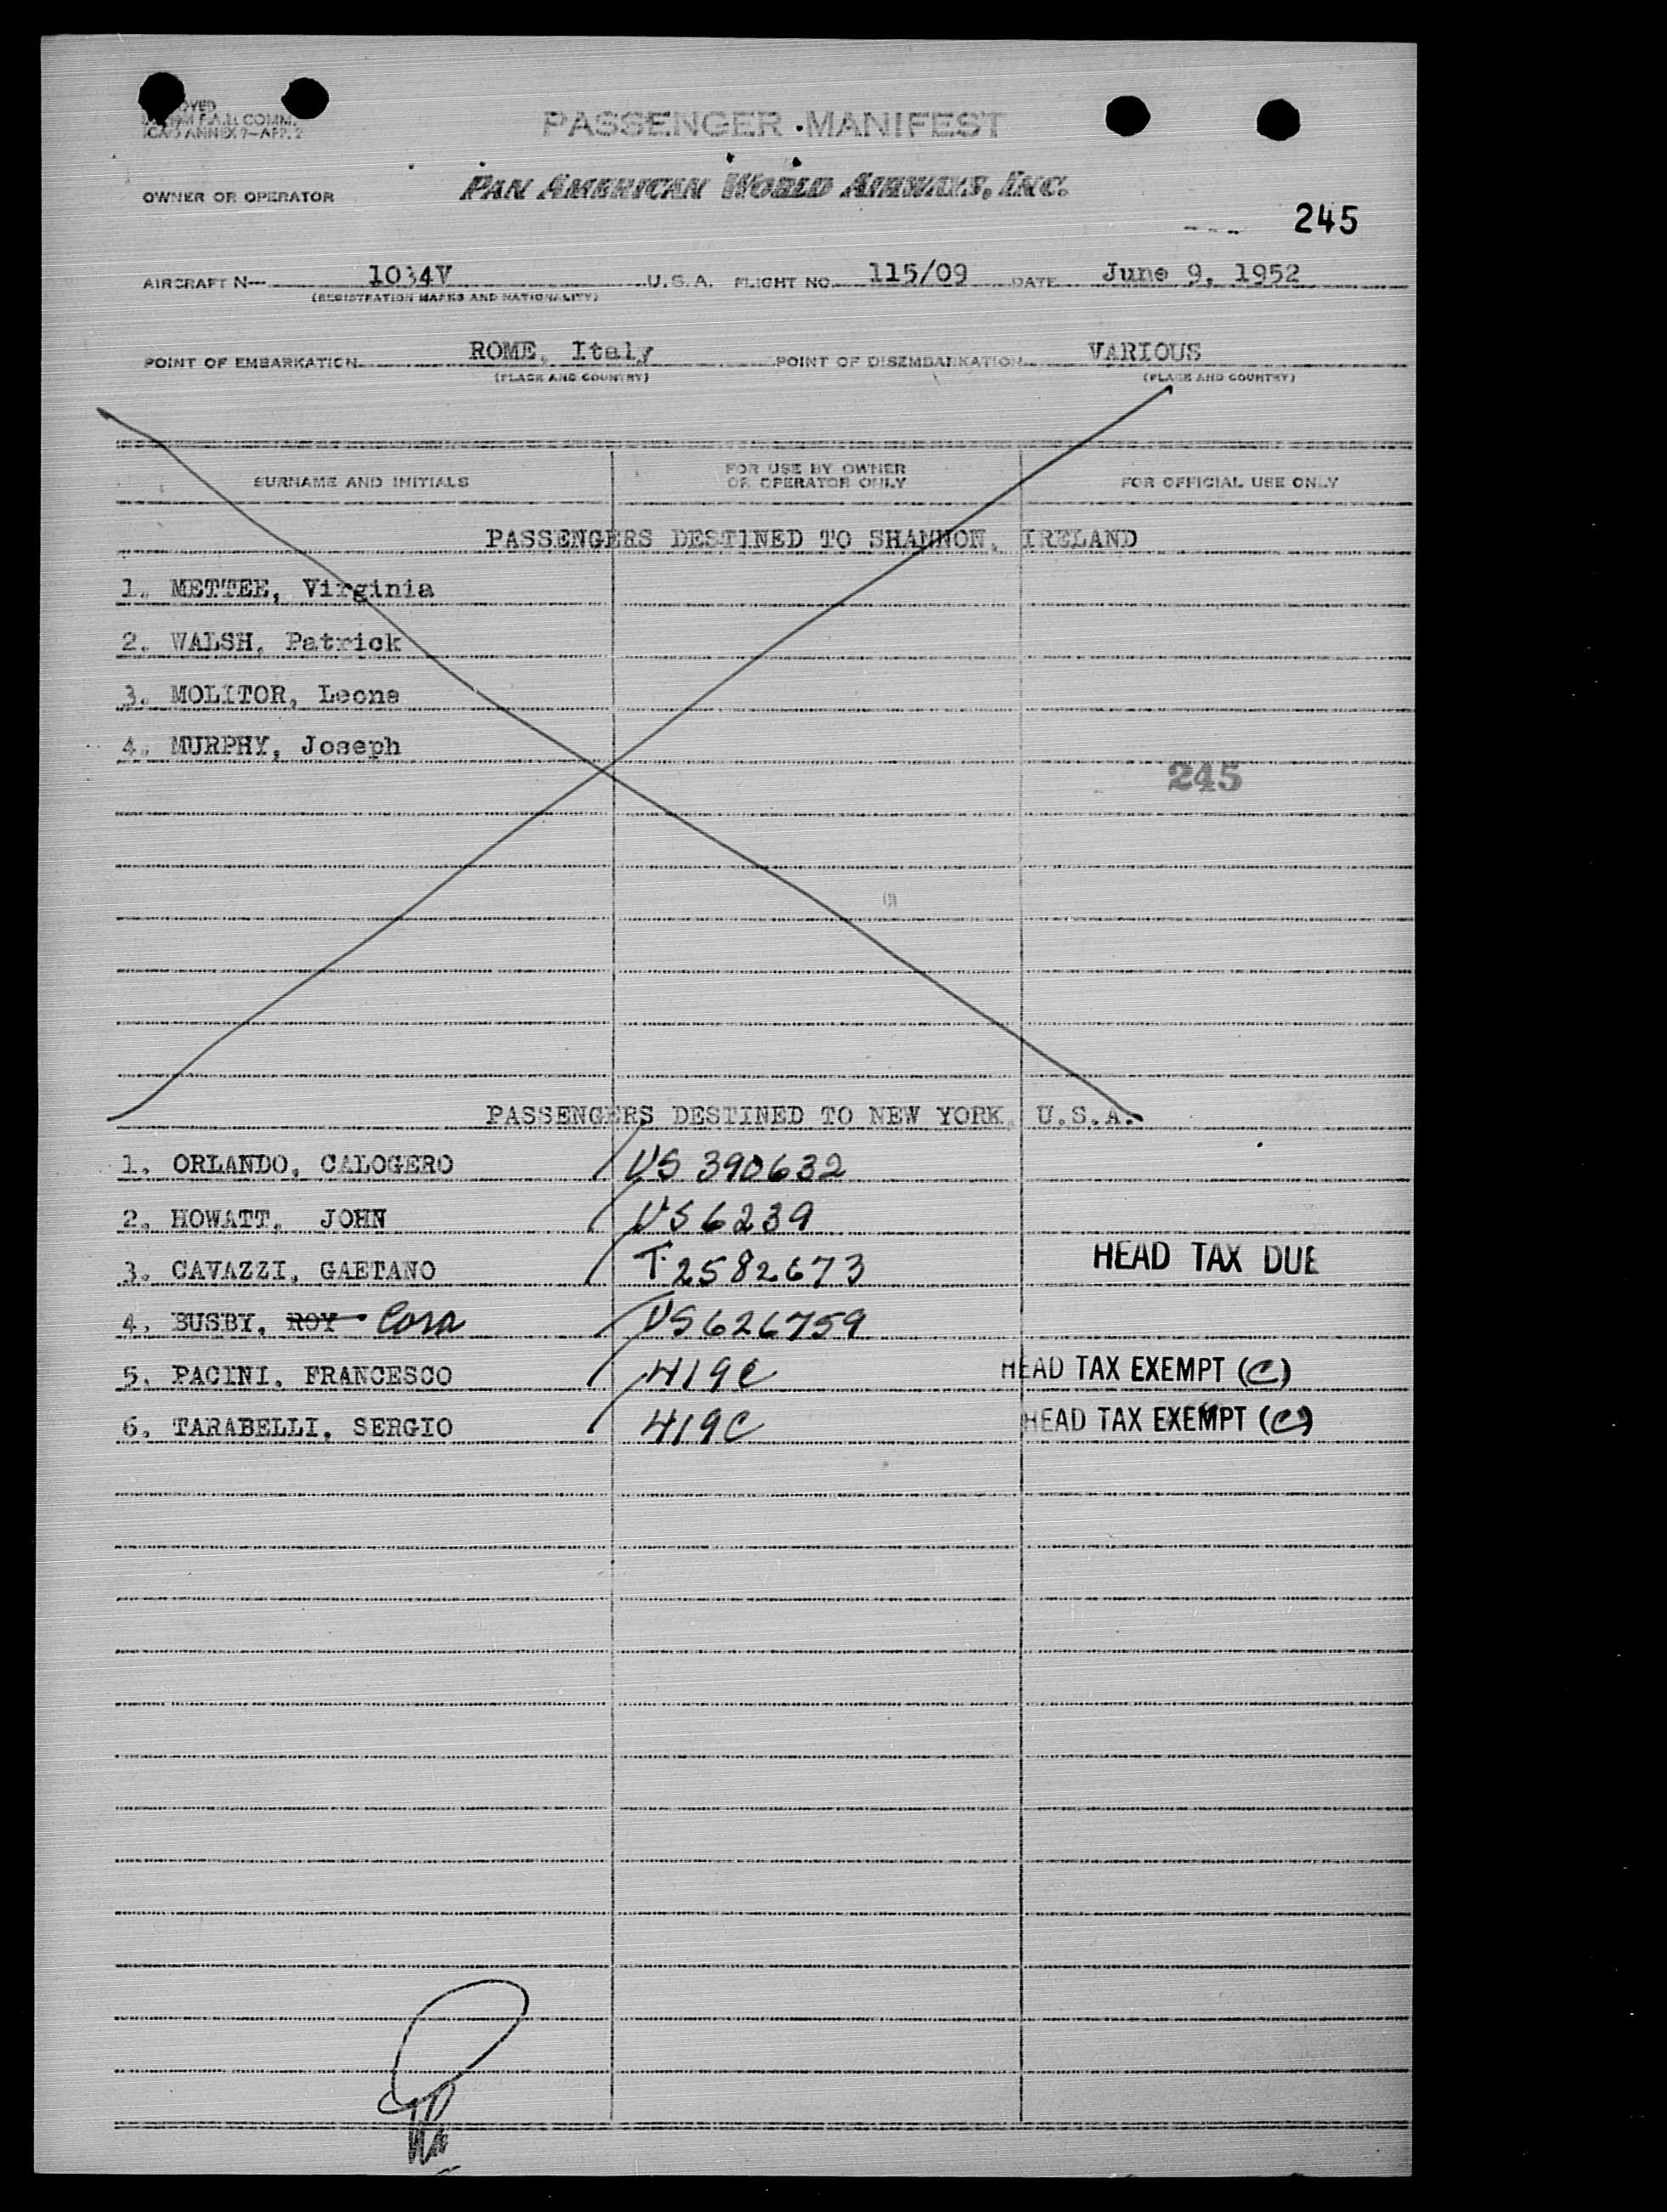 PASSENGER MANIFEST
ICAO ANNEX 9-APP. 2
OWNER OR OPERATOR PAN AMERICAN WORLD AIRWAYS, INC.
245
AIRCRAFT N- 1034V U.S.A. FLIGHT NO. 115/09 DATE June 9, 1952
(REGISTRATION MARKS AND NATIONALITY)
POINT OF EMBARKATION ROME, Italy POINT OF DISEMBARKATION VARIOUS
(PLACE AND COUNTRY) (PLACE AND COUNTRY)
SURNAME AND INITIALS FOR USE BY OWNER OR OPERATOR ONLY FOR OFFICIAL USE ONLY
PASSENGERS DESTINED TO SHANNON, IRELAND
1. METTEE, Virginia
2. WALSH, Patrick
3. MOLITOR, Leona
4. MURPHY, Joseph
245
PASSENGERS DESTINED TO NEW YORK, U.S.A.
1. ORLANDO, CALOGERO / US 390632
2. HOWATT, JOHN / US 6239
3. CAVAZZI, GAETANO / T-2582673 HEAD TAX DUE
4. BUSBY, ROY Cora / US 626759
5. PACINI, FRANCESCO / 419C HEAD TAX EXEMPT (C)
6. TARABELLI, SERGIO / 419C HEAD TAX EXEMPT (C)